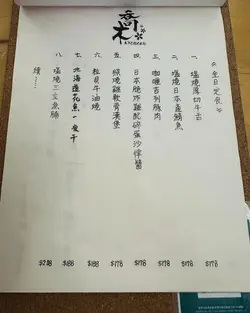 喬木
今日定食
一、鹽燒厚切牛舌 $178
二、鹽燒日本產鯖魚 $178
三、咖喱吉列豬肉 $178
四、日本脆炸雞配碎蛋沙律醬 $178
五、燒雞軟骨漢堡 $178
六、粒貝牛油燒 $188
七、北海道花魚一夜干 $188
八、鹽燒三文魚腩 $218
續......